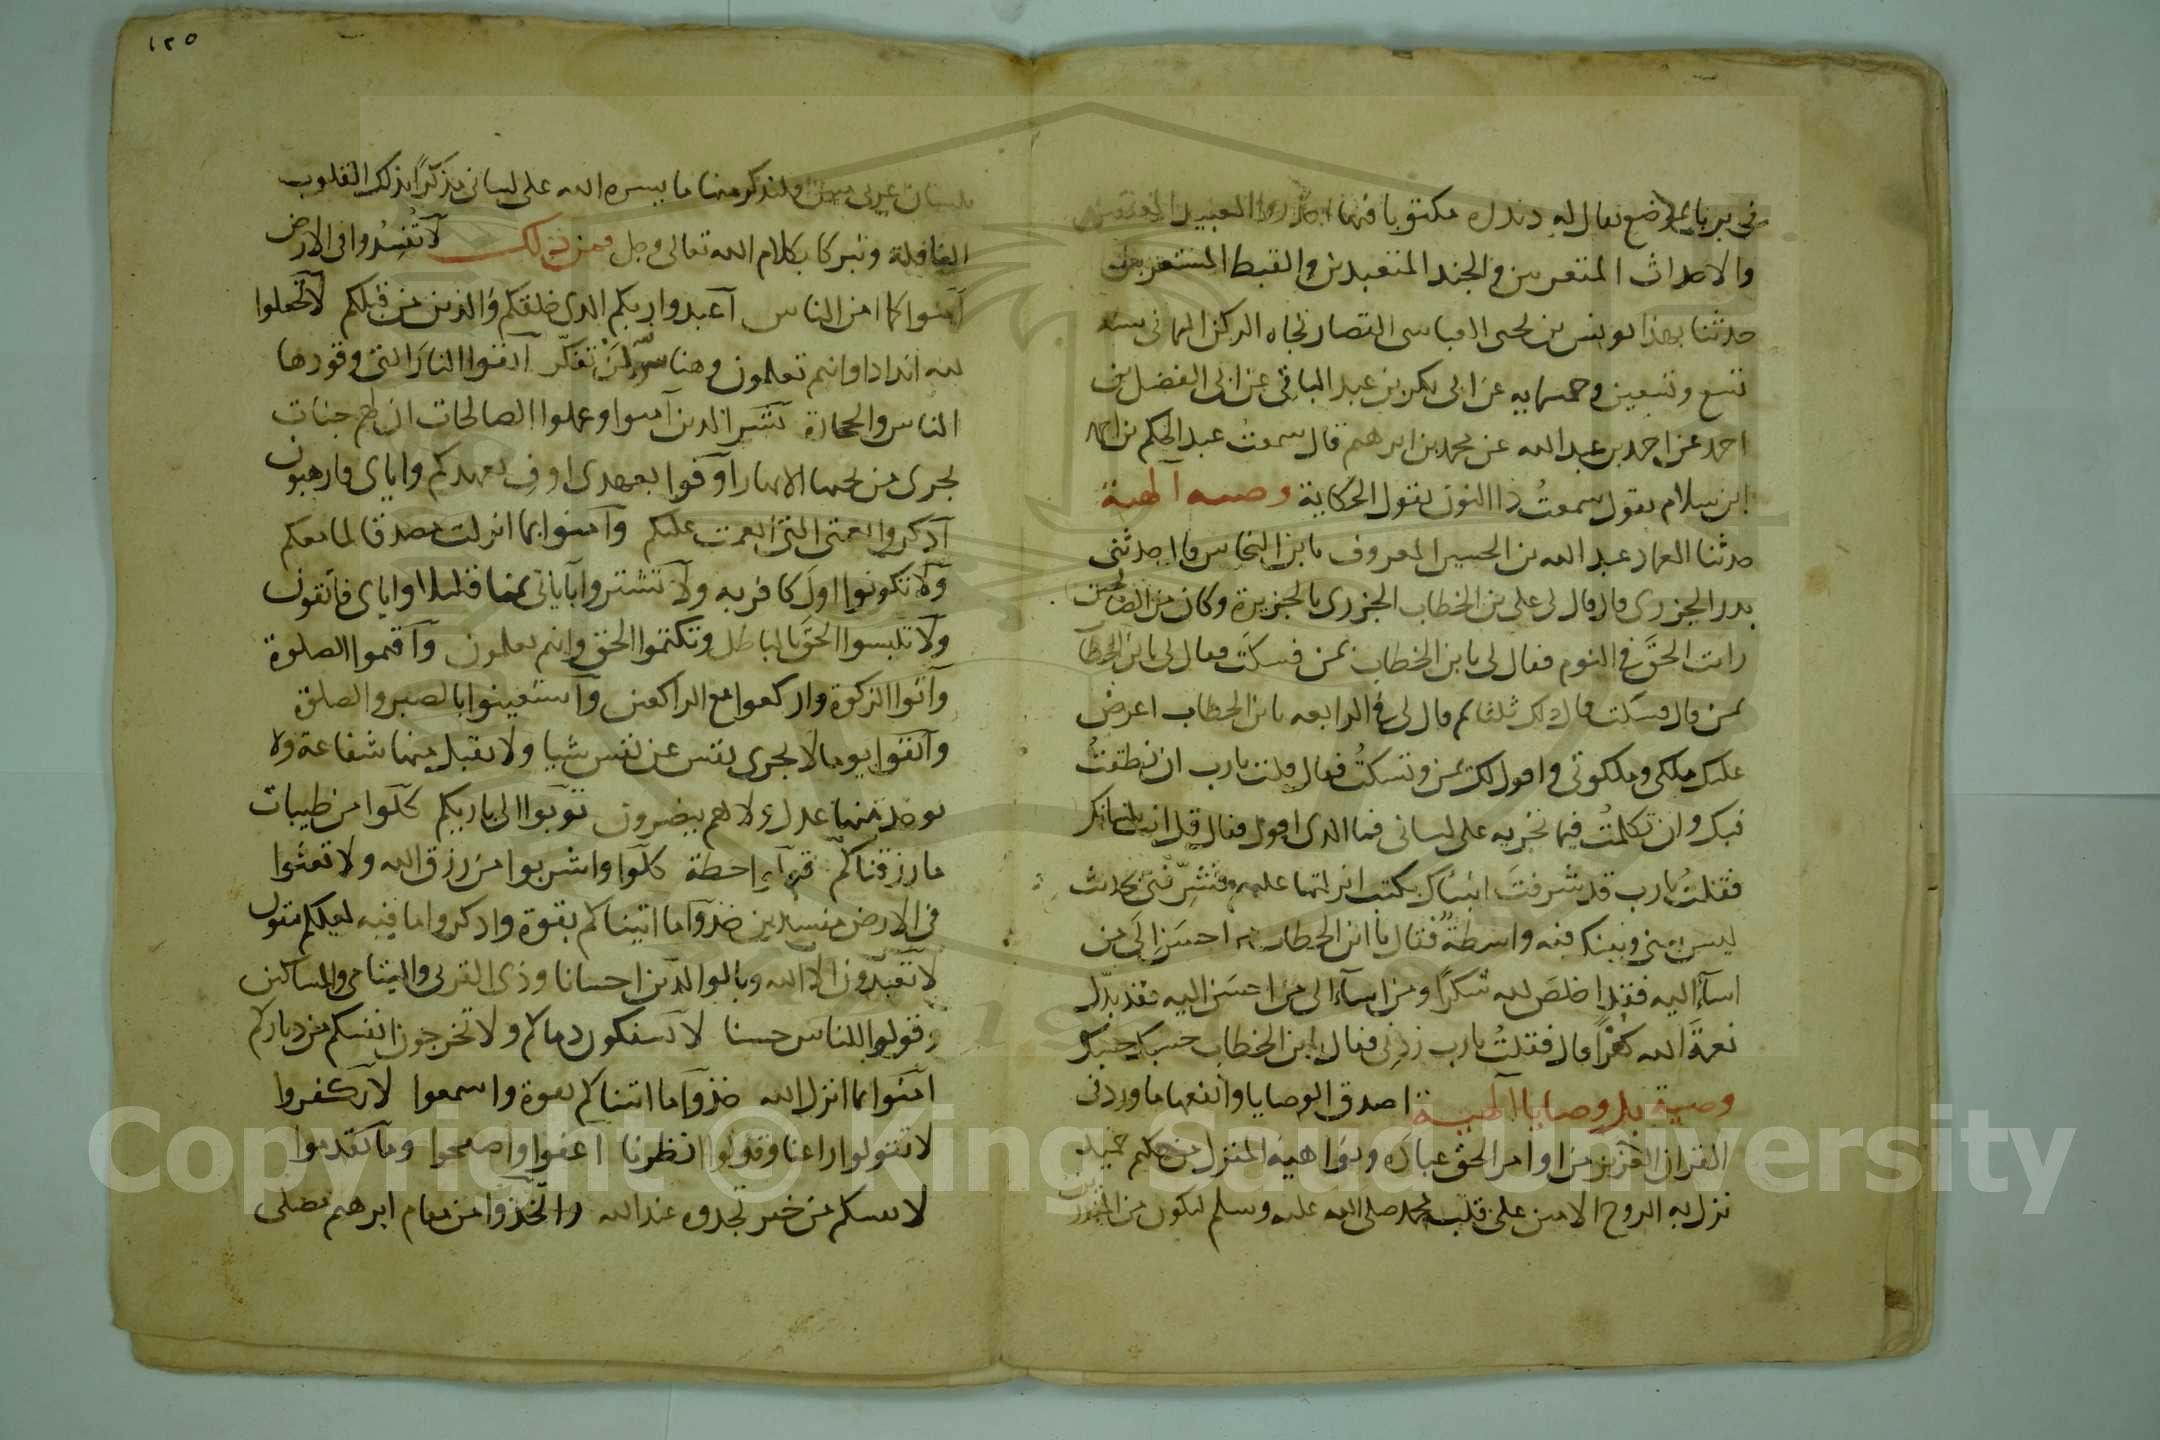 في بربا بموضع يقال له دندره مكتوبا فيها احذروا العبيد المعتقين
والاحداث المتقربين والجند المتعبدين والقبط المستعربين
حدثنا بهذا يونس بن يحيى العباسي القصار تجاه الركن اليماني سنة
تسع وتسعين وخمسمايه عن ابي بكر بن عبد الباقي عن ابي الفضل بن
احمد عن احمد بن عبد الله عن محمد بن ابرهيم قال سمعت عبد الحكم بن احمد
ابن سلام يقول سمعتُ ذا النون يقول الحكاية وصيه آلهية
حدثنا العماد عبد الله بن الحسين المعروف بابن النحاس قال حدثني
بدر الجزري قال قال لي علي بن الخطاب الجزري بالجزيرة وكان من الصالحين
رايت الحقَّ في النوم فقال لي يا بن الخطاب تمن فسكتُّ فقال لي يا بن الخطاب
تمن قال فسكت قال ذلك ثلثا ثم قال لي في الرابعه يا بن الخطاب اعرض
عليك ملكي وملكوتي واقول لك تمن وتسكتُ فقال قلت يارب ان نطقتُ
فبك وان تكلمتُ فيما تجريه على لساني فما الذي اقول فقال قل انت بلسانك
فقلتُ يارب قد شرفتَ انبياك بكتب انزلتها عليهم فشرّفني بحديث
ليس بيني وبينك فيه واسطةٌ فقال يا ابن الخطاب من احسَن الى من
اسآءَ اليه فقد اخلصَ لله شكرًا ومن اسآء الى من احسَن اليه فقد بدّل
نعمةَ الله كفرًا قال فقلتُ يارب زدني فقال يا بن الخطاب حسبك حسبك
وصية بل وصايا آلهية اصدق الوصايا وانفعها ما ورد في
القران العزيز من اوامر الحق عباده ونواهيه المنزل من حكيم حميد
نزل به الروح الامين على قلب محمد صلى الله عليه وسلم ليكون من المنذرين
بلسان عربي مبين ولنذكر منها ما يسره الله على لساني مذكّرًا بذلك القلوب
الغافلة وتبركا بكلام الله تعالى وجل فمن ذلك لا تُفسدوا في الارض
آمنوا كما امن الناس آعبدوا ربكم الذي خلقكم والذين من قبلكم لا تجعلوا
لله اندادا وانتم تعلمون وهنا سرّ لمن تفكّر آتقوا النار التي وقودها
الناس والحجارة بَشّر الذين آمنوا وعملوا الصالحات ان لهم جنات
تجري من تحتها الانهار آوفوا بعهدي اوف بعهدكم واياي فارهبون
آذكروا نعمتي التي انعمت عليكم وآمنوا بما انزلت مصدقا لما معكم
ولا تكونوا اولَ كافر به ولا تشتروا بآياتي ثمنا قليلا واياي فاتقون
ولا تلبسوا الحقَّ بالباطل وتكتموا الحق وانتم تعلمون وآقيموا الصلوة
وآتوا الزكوة واركعوا مع الراكعين وآستعينوا بالصبر والصلوة
وآتقوا يوما لا تجزي نفس عن نفس شيا ولا يقبل منها شفاعة ولا
يوخذ منها عدل ولا هم ينصرون توبوا الى باريكم كلوا من طيبات
ما رزقناكم قولوا حطة كلوا واشربوا من رزق الله ولا تعثوا
في الارض مفسدين خذوآ ما اتيناكم بقوة واذكروا ما فيه لعلكم تتقون
لا تعبدون الا الله وبالوالدين احسانا وذي القربى واليتامى والمساكين
وقولوا للناس حسنا لا تسفكون دماكم ولا تخرجون انفسكم من دياركم
آمنوا بما انزل الله خذوآ ما اتيناكم بقوة واسمعوا لا تكفروا
لا تقولوا راعنا وقولوا انظرنا آعفوا واصفحوا وما تقدموا
لانفسكم من خير تجدوه عند الله واتخذوا من مقام ابرهيم مصلى
١٢٥
Copyright © King Saud University